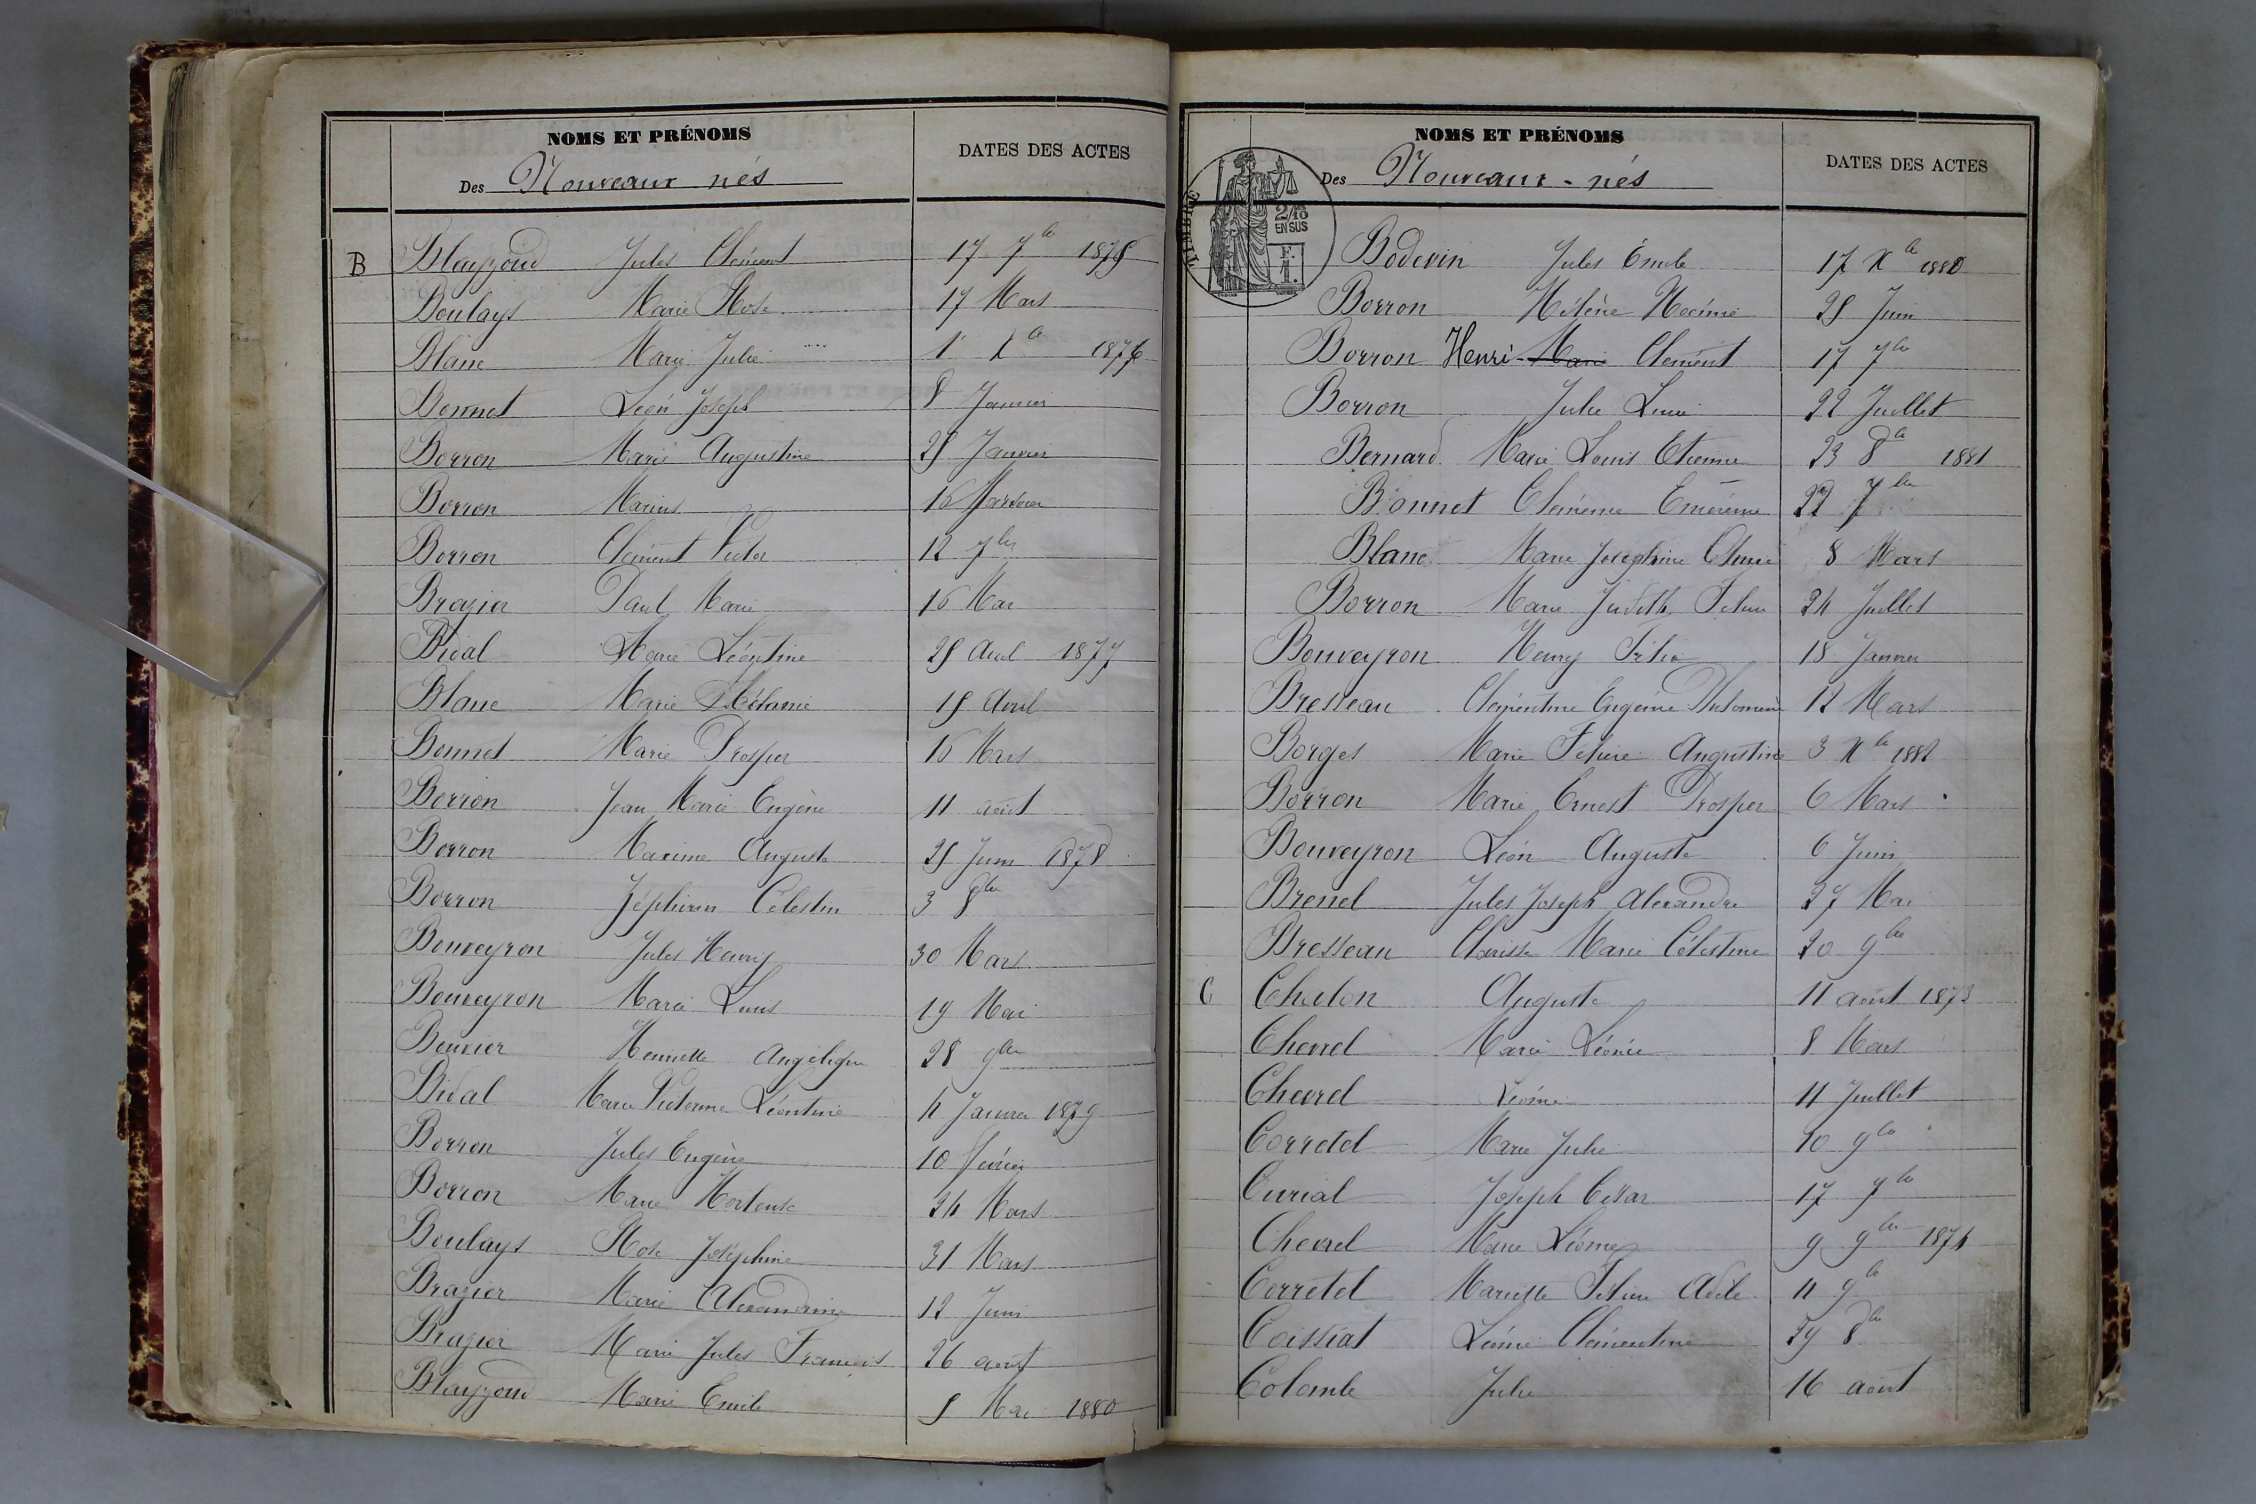 NOMS ET PRÉNOMS
Des Nouveaux nés
DATES DES ACTES
B Blayzoud Jules Clément 17 7bre 1875
Boulays Marie Rose 17 Mars
Blanc Marie Julie 1r Xbre 1876
Bonnet Léon Joseph 8 Janvier
Borron Marie Augustine 25 Janvier
Borron Marius 16
Borron Clément Victor 12 7bre
Brazier Paul Marie 16 Mai
Bidal Marie Léontine 25 Avril 1877
Blanc Marie Mélanie 15 Avril
Bonnet Marie Prosper 16 Mars
Borron Jean Marie Eugène 11 août
Borron Maxime Auguste 25 Juin 1878
Borron Zéphirin Célestin 3 8bre
Bouveyron Jules Henry 30 Mars
Bouveyron Marie Louis 19 Mai
Bouvier Henriette Angélique 28 9bre
Bidal Marie Victorine Léontine 4 Janvier 1879
Borron Jules Eugène 10 février
Borron Marie Hortense 24 Mars
Boulays Rose Joséphine 31 Mars
Brazier Marie Alexandrine 12 Juin
Brazier Marie Jules François 26 août
Blayzoud Marie Emile 5 Mai 1880
NOMS ET PRÉNOMS
Des Nouveaux-nés
DATES DES ACTES
TIMBRE
2/10
EN SUS
F.
1.
Bodevin Jules Émile 17 Xbre 1880
Borron Hélène Noémie 25 Juin
Borron Henri Marie Clément 17 7bre
Borron Julie 22 Juillet
Bernard Marie Louis Etienne 23 8bre 1881
Bonnet Clémence 22 7bre
Blanc Marie Joséphine 8 Mars
Borron Marie Judith 24 Juillet
Bouveyron Henry 18 Janvier
Bresseau Clémentine Eugénie Philomène 12 Mars
Borges Marie Félicie Augustine 3 Xbre 1882
Borron Marie Ernest Prosper 6 Mars
Bouveyron Léon Auguste 6 Juin
Brenel Jules Joseph Alexandre 27 Mai
Bresseau Clarisse Marie Célestine 20 9bre
C Chalon Auguste 11 août 1873
Chevrel Marie Léonie 8 Mars
Chevrel Léonie 11 Juillet
Corretel Marie Julie 10 9bre
Curial Joseph César 17 7bre
Chevrel Marie Léonie 9 9bre 1874
Corretel Mariette Adèle 11 9bre
Coissiat Léonie Clémentine 29 8bre
Colomb Julie 16 août